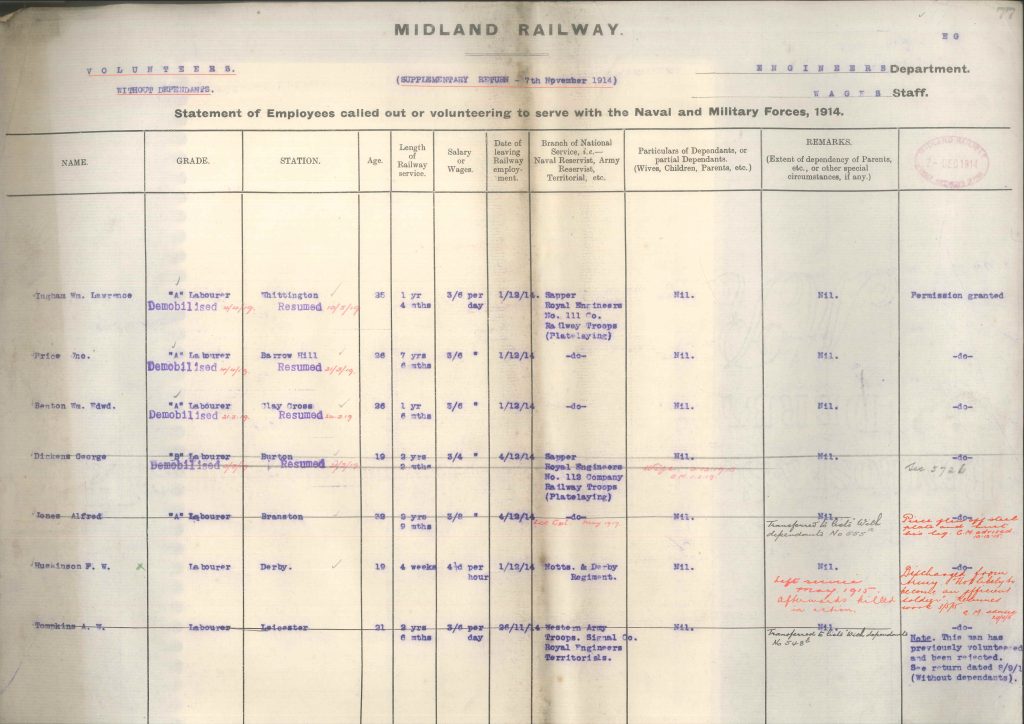 77
MIDLAND RAILWAY.
EG
VOLUNTEERS.
WITHOUT DEPENDANTS.
(SUPPLEMENTARY RETURN - 7th November 1914)
ENGINEERS Department.
WAGES Staff.
Statement of Employees called out or volunteering to serve with the Naval and Military Forces, 1914.
NAME.
GRADE.
STATION.
Age.
Length of Railway service.
Salary or Wages.
Date of leaving Railway employ-ment.
Branch of National Service, i.e.— Naval Reservist, Army Reservist, Territorial, etc.
Particulars of Dependants, or partial Dependants. (Wives, Children, Parents, etc.)
REMARKS.
(Extent of dependency of Parents, etc., or other special circumstances, if any.)
MIDLAND RAILWAY
DEC 1914
Ingham Wm. Lawrence "A" Labourer Whittington 25 1 yr 3/6 per 1/12/14. Sapper Nil. Nil. Permission granted
Demobilised Resumed 4 mths day Royal Engineers
No. 111 Co.
Railway Troops
(Platelaying)
Price Jno. "A" Labourer Barrow Hill 26 7 yrs 3/6 " 1/12/14 -do- Nil. Nil. -do-
Demobilised Resumed 21/3/19. 6 mths
Benton Wm. Edwd. "A" Labourer Clay Cross 26 1 yr 3/6 " 1/12/14 -do- Nil. Nil. -do-
Demobilised Resumed 6 mths
Dickens George "B" Labourer Burton 19 2 yrs 3/4 " 4/12/14 Sapper Nil. Nil. -do-
Demobilised Resumed 2 mths Royal Engineers See 572b
No. 112 Company
Railway Troops
(Platelaying)
Jones Alfred "A" Labourer Branston 32 2 yrs 3/8 " 4/12/14 -do- Nil. Nil. -do-
9 mths May 1917. Transferred to lists With dependants No 555 Piece flew off steel plate and hurt his leg. C.M. advised
Huskinson F. W. x Labourer Derby. 19 4 weeks 4½d per hour 1/12/14 Notts. & Derby Regiment. Nil. Nil. -do-
Left service May 1915. afterwards killed in action.
Discharged from Army "Not likely to become an efficient soldier". Resumed work 5/5/15 C.M. advised
Tompkins A. W. Labourer Leicester 21 2 yrs 3/6 per 26/11/14 Western Army Nil. Nil. -do-
6 mths day Troops. Signal Co. Transferred to lists With dependants
Royal Engineers No 548b
Territorials.
Note. This man has
previously volunteered
and been rejected.
See return dated 8/9/1
(Without dependants).